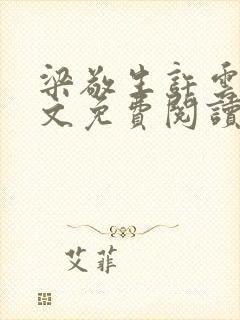 梁敬生許雲
文免費閱讀
艾菲